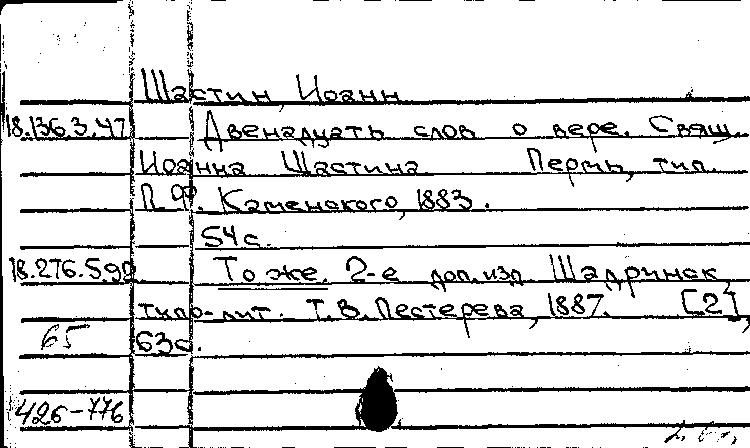 Шастин, Иоанн
18.136.3.47 Двенадцать слов о вере. Свящ.
Иоанна Шастина. Пермь, тип.
П.Ф. Каменского, 1883.
54с.
18.276.5.92 То же. 2-е доп.изд. Шадринск,
типо-лит. Т.В. Пестерева, 1887. [2],
65 63с.
426-776